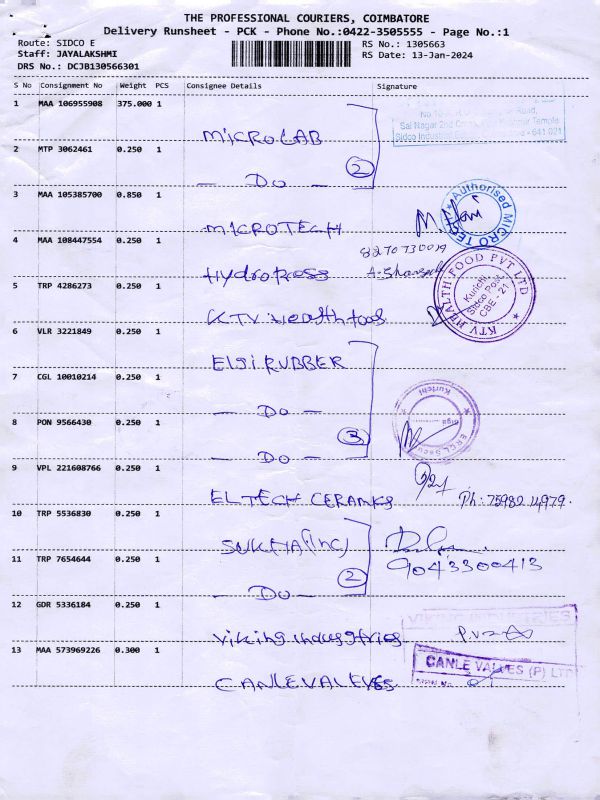 THE PROFESSIONAL COURIERS, COIMBATORE
Delivery Runsheet - PCK - Phone No.:0422-3505555 - Page No.:1
Route: SIDCO E
RS No.: 1305663
Staff: JAYALAKSHMI
RS Date: 13-Jan-2024
DRS No.: DCJB130566301
S No Consignment No Weight PCS Consignee Details Signature
1 MAA 106955908 375.000 1 MICROLAB
Road,
Sai Nagar 2nd Temple
Sidco Industrial - 641 021
2 MTP 3062461 0.250 1 - Do - 2
3 MAA 105385700 0.850 1 MICROTECH
Authorised MICRO TECH
4 MAA 108447554 0.250 1 Hydropress 8270730019
5 TRP 4286273 0.250 1 KTV Health food
KTV HEALTH FOOD PVT LTD
Kurichi,
Sidco Post,
CBE - 21
6 VLR 3221849 0.250 1 ElgiRUBBER
7 CGL 10010214 0.250 1 - Do -
Kurichi
8 PON 9566430 0.250 1 - Do - 3
9 VPL 221608766 0.250 1 ELTECH CERAMKS Ph: 75982 14979.
10 TRP 5536830 0.250 1 SUKHA(Inc)
11 TRP 7654644 0.250 1 - Do - 2 9043300413
12 GDR 5336184 0.250 1 Viking industries
VIKING INDUSTRIES
13 MAA 573969226 0.300 1 CANLEVALVES
CANLE VALVES (P) LTD